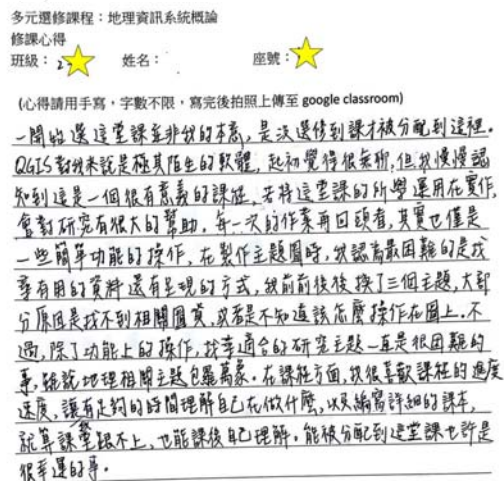 多元選修課程：地理資訊系統概論
修課心得
班級：2 姓名： 座號：
(心得請用手寫，字數不限，寫完後拍照上傳至 google classroom)
一開始選這堂課並非我的本意，是沒選修到課才被分配到這裡。
QGIS對我來說是極其陌生的軟體，起初覺得很無聊，但我慢慢認
知到這是一個很有意義的課程，若將這堂課的所學運用在實作，
會對研究有很大的幫助，每一次的作業再回頭看，其實也僅是
一些簡單功能的操作，在製作主題圖時，我認為最困難的是找
尋有用的資料還有呈現的方式，我前前後後換了三個主題，大部
分原因是找不到相關圖資，或者是不知道該怎麼操作在圖上，不
過，除了功能上的操作，找尋適合的研究主題一直是很困難的
事，雖說地理相關主題包羅萬象。在課程方面，我很喜歡課程的進度
速度，讓有足夠的時間理解自己在做什麼，以及編寫詳細的課本，
就算課堂跟不上，也能課後自己理解。能被分配到這堂課也許是
很幸運的事。